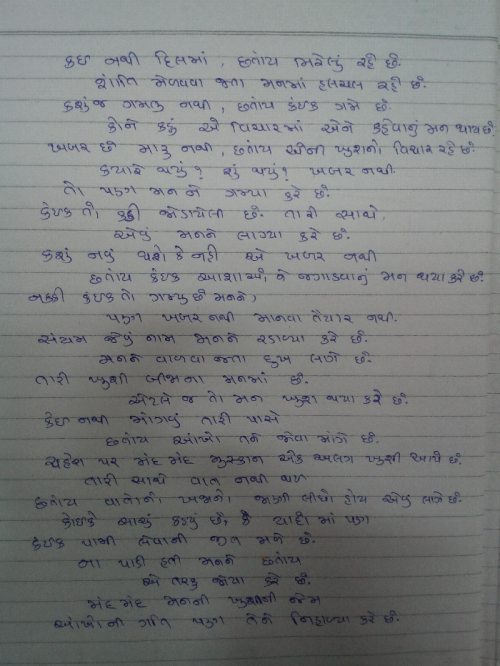 કઈ નથી દિલમાં, છતાંય ભરેલું રહે છે.
શાંતિ મેળવવા જતા મનમાં હલચલ રહે છે.
કશુંજ ગમતુ નથી, છતાંય કંઇક ગમે છે.
કોને કહું એ વિચારમાં એને કહેવાનું મન થાય છે.
ખબર છે મારુ નથી, છતાંય એની ખુશનો વિચાર રહે છે.
ક્યારે થયું? શું થયું? ખબર નથી.
તો પણ મનને ગમ્યા કરે છે.
કંઇક તો કડી જોડાયેલી છે. તારી સાથે.
એવું મનને લાગ્યા કરે છે.
કશું નવું થશે કે નહી એ ખબર નથી
છતાંય કંઇક આશાઓ ને જગાડવાનું મન થયા કરે છે.
નક્કી કંઇક તો ગમ્યુ છે મનને,
પણ ખબર નથી માનવા તૈયાર નથી.
સંયમ જેવું નામ મનને રડાવ્યા કરે છે.
મનને વાળવા જતા દુખ લાગે છે.
તારી ખુશી બીજાના મનમાં છે.
એટલે જ તો મન ખુશ થયા કરે છે.
કંઇ નથી માંગવું તારી પાસે
છતાંય આંખો તને જોવા માંગે છે.
ચહેરા પર મંદ મંદ મુસ્કાન એક અલગ ખુશી આપે છે.
તારી સાથે વાત નથી થઇ
છતાંય વાતોનો ખજાનો જાણી લીધો હોય એવું લાગે છે.
કોઇકે સાચું કહ્યું છે, કે યાદી માં પણ
કંઇક પામી લેવાની જીત મળે છે.
ના પાડી હતી મનને છતાંય
એ તરફ જોયા કરે છે.
મંદ મંદ મનની ખુશીની જેમ
આંખોની ગતિ પણ તેને નિહાળ્યા કરે છે.